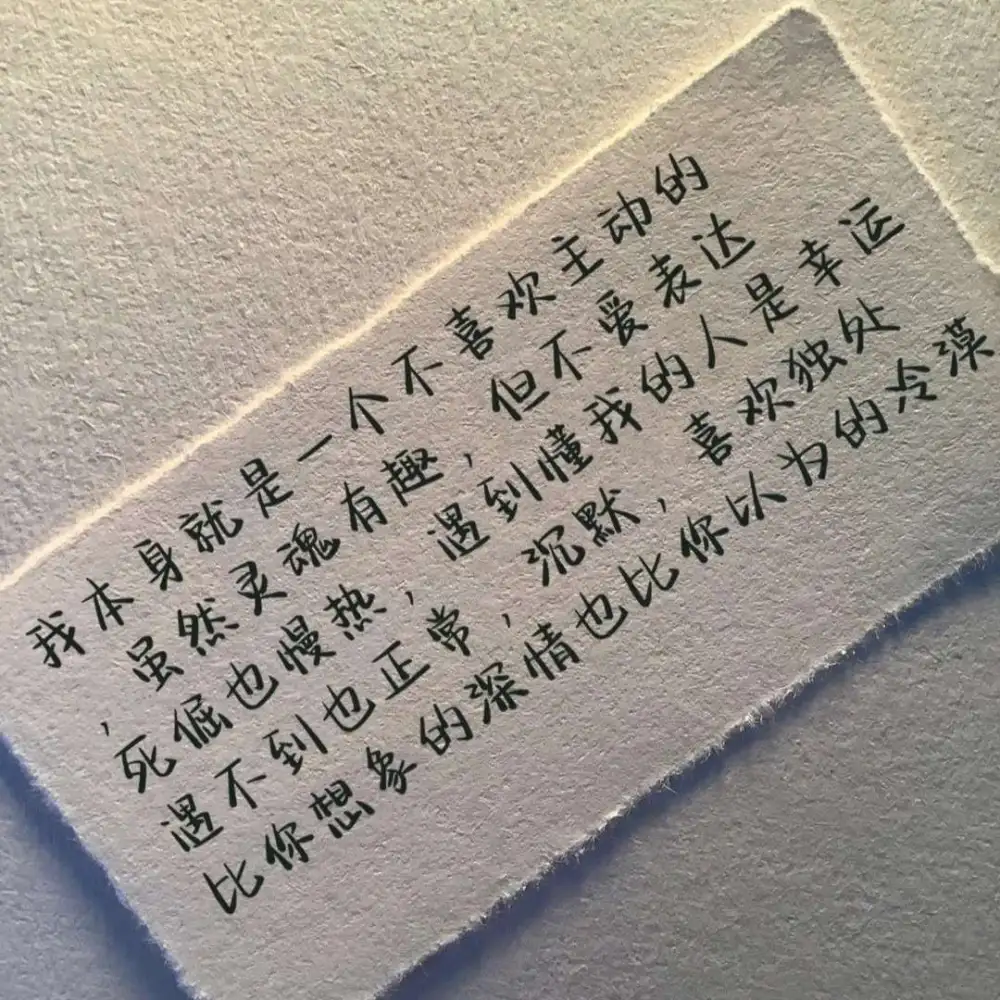 我本身就是一个不喜欢主动的
，虽然灵魂有趣，但不爱表达
死倔也慢热，遇到懂我的人是幸运
遇不到也正常，沉默，喜欢独处
比你想象的深情也比你以为的冷漠